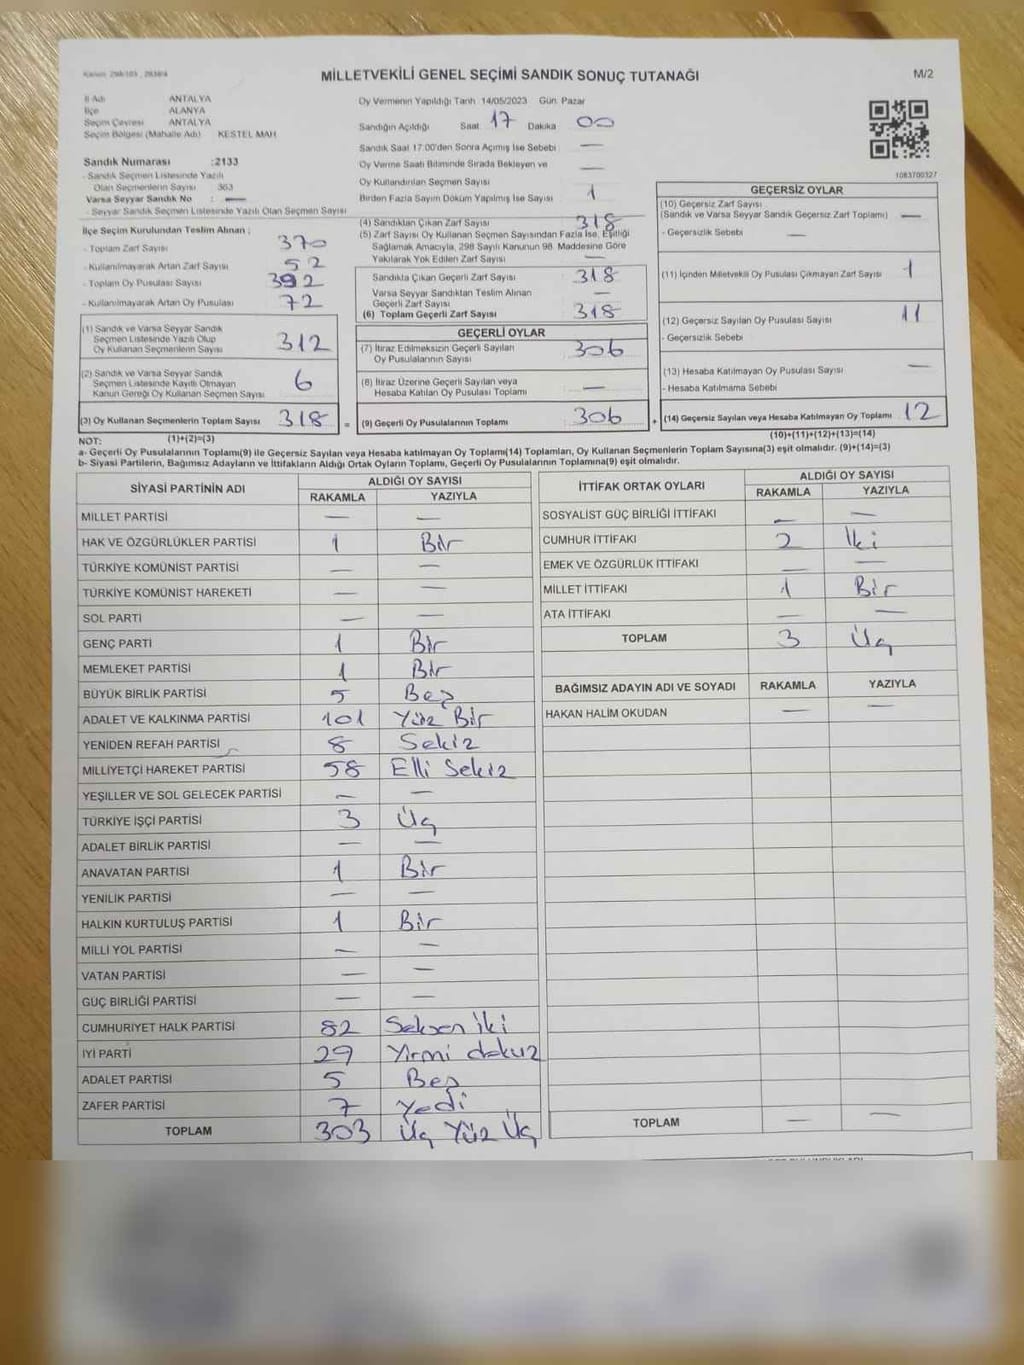 MİLLETVEKİLİ GENEL SEÇİMİ SANDIK SONUÇ TUTANAĞI
M/2
İl Adı ANTALYA
İlçe ALANYA
Seçim Çevresi ANTALYA
Seçim Bölgesi (Mahalle Adı) KESTEL MAH
Sandık Numarası :2133
- Sandık Seçmen Listesinde Yazılı
Olan Seçmenlerin Sayısı 363
Varsa Seyyar Sandık No : —
- Seyyar Sandık Seçmen Listesinde Yazılı Olan Seçmen Sayısı
İlçe Seçim Kurulundan Teslim Alınan ;
- Toplam Zarf Sayısı 370
- Kullanılmayarak Artan Zarf Sayısı 52
- Toplam Oy Pusulası Sayısı 392
- Kullanılmayarak Artan Oy Pusulası 72
(1) Sandık ve Varsa Seyyar Sandık
Seçmen Listesinde Yazılı Olup
Oy Kullanan Seçmenlerin Sayısı 312
(2) Sandık ve Varsa Seyyar Sandık
Seçmen Listesinde Kayıtlı Olmayan
Kanun Gereği Oy Kullanan Seçmen Sayısı 6
(3) Oy Kullanan Seçmenlerin Toplam Sayısı 318 =
(1)+(2)=(3)
Oy Vermenin Yapıldığı Tarih 14/05/2023 Gün: Pazar
Sandığın Açıldığı Saat 17 Dakika 00
Sandık Saat 17:00'den Sonra Açılmış İse Sebebi —
Oy Verme Saati Bitiminde Sırada Bekleyen ve
Oy Kullandırılan Seçmen Sayısı —
Birden Fazla Sayım Döküm Yapılmış İse Sayısı 1
(4) Sandıktan Çıkan Zarf Sayısı 318
(5) Zarf Sayısı Oy Kullanan Seçmen Sayısından Fazla İse, Eşitliği
Sağlamak Amacıyla, 298 Sayılı Kanunun 98. Maddesine Göre
Yakılarak Yok Edilen Zarf Sayısı —
Sandıkta Çıkan Geçerli Zarf Sayısı 318
Varsa Seyyar Sandıktan Teslim Alınan
Geçerli Zarf Sayısı —
(6) Toplam Geçerli Zarf Sayısı 318
GEÇERLİ OYLAR
(7) İtiraz Edilmeksizin Geçerli Sayılan
Oy Pusulalarının Sayısı 306
(8) İtiraz Üzerine Geçerli Sayılan veya
Hesaba Katılan Oy Pusulası Toplamı —
(9) Geçerli Oy Pusulalarının Toplamı 306 +
1083700327
GEÇERSİZ OYLAR
(10) Geçersiz Zarf Sayısı
(Sandık ve Varsa Seyyar Sandık Geçersiz Zarf Toplamı) —
- Geçersizlik Sebebi —
(11) İçinden Milletvekili Oy Pusulası Çıkmayan Zarf Sayısı 1
(12) Geçersiz Sayılan Oy Pusulası Sayısı 11
- Geçersizlik Sebebi
(13) Hesaba Katılmayan Oy Pusulası Sayısı —
- Hesaba Katılmama Sebebi
(14) Geçersiz Sayılan veya Hesaba Katılmayan Oy Toplamı 12
(10)+(11)+(12)+(13)=(14)
NOT:
a- Geçerli Oy Pusulalarının Toplamı(9) ile Geçersiz Sayılan veya Hesaba katılmayan Oy Toplamı(14) Toplamları, Oy Kullanan Seçmenlerin Toplam Sayısına(3) eşit olmalıdır. (9)+(14)=(3)
b- Siyasi Partilerin, Bağımsız Adayların ve İttifakların Aldığı Ortak Oyların Toplamı, Geçerli Oy Pusulalarının Toplamına(9) eşit olmalıdır.
SİYASİ PARTİNİN ADI ALDIĞI OY SAYISI
RAKAMLA YAZIYLA
MİLLET PARTİSİ — —
HAK VE ÖZGÜRLÜKLER PARTİSİ 1 Bir
TÜRKİYE KOMÜNİST PARTİSİ — —
TÜRKİYE KOMÜNİST HAREKETİ — —
SOL PARTİ — —
GENÇ PARTİ 1 Bir
MEMLEKET PARTİSİ 1 Bir
BÜYÜK BİRLİK PARTİSİ 5 Beş
ADALET VE KALKINMA PARTİSİ 101 Yüz Bir
YENİDEN REFAH PARTİSİ 8 Sekiz
MİLLİYETÇİ HAREKET PARTİSİ 58 Elli Sekiz
YEŞİLLER VE SOL GELECEK PARTİSİ — —
TÜRKİYE İŞÇİ PARTİSİ 3 Üç
ADALET BİRLİK PARTİSİ — —
ANAVATAN PARTİSİ 1 Bir
YENİLİK PARTİSİ — —
HALKIN KURTULUŞ PARTİSİ 1 Bir
MİLLİ YOL PARTİSİ — —
VATAN PARTİSİ — —
GÜÇ BİRLİĞİ PARTİSİ — —
CUMHURİYET HALK PARTİSİ 82 Seksen iki
İYİ PARTİ 29 Yirmi dokuz
ADALET PARTİSİ 5 Beş
ZAFER PARTİSİ 7 Yedi
TOPLAM 303 Üç Yüz Üç
İTTİFAK ORTAK OYLARI ALDIĞI OY SAYISI
RAKAMLA YAZIYLA
SOSYALİST GÜÇ BİRLİĞİ İTTİFAKI — —
CUMHUR İTTİFAKI 2 İki
EMEK VE ÖZGÜRLÜK İTTİFAKI — —
MİLLET İTTİFAKI 1 Bir
ATA İTTİFAKI — —
TOPLAM 3 Üç
BAĞIMSIZ ADAYIN ADI VE SOYADI RAKAMLA YAZIYLA
HAKAN HALİM OKUDAN — —
TOPLAM — —